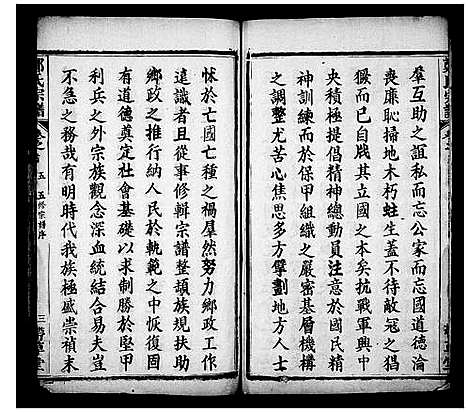 羣互助之誼私而忘公家而忘國道德淪
喪廉恥掃地木朽蛀生蓋不待敵寇之猖
獗而已自戕其立國之本矣抗戰軍興中
央積極提倡精神總動員注意於國民精
神訓練而於保甲組織之嚴密基層機構
之調整尤苦心焦思多方擘劃地方人士
怵於亡國亡種之禍羣然努力鄉政工作
遠識者且從事修輯宗譜整頓族規扶助
鄉政之推行納人民於軌範之中恢復固
有道德奠定社會基礎以求制勝於堅甲
利兵之外宗族觀念深血統結合易夫豈
不急之務哉有明時代我族極盛崇禎末
氏宗譜
五
五修宗譜序
三
堂